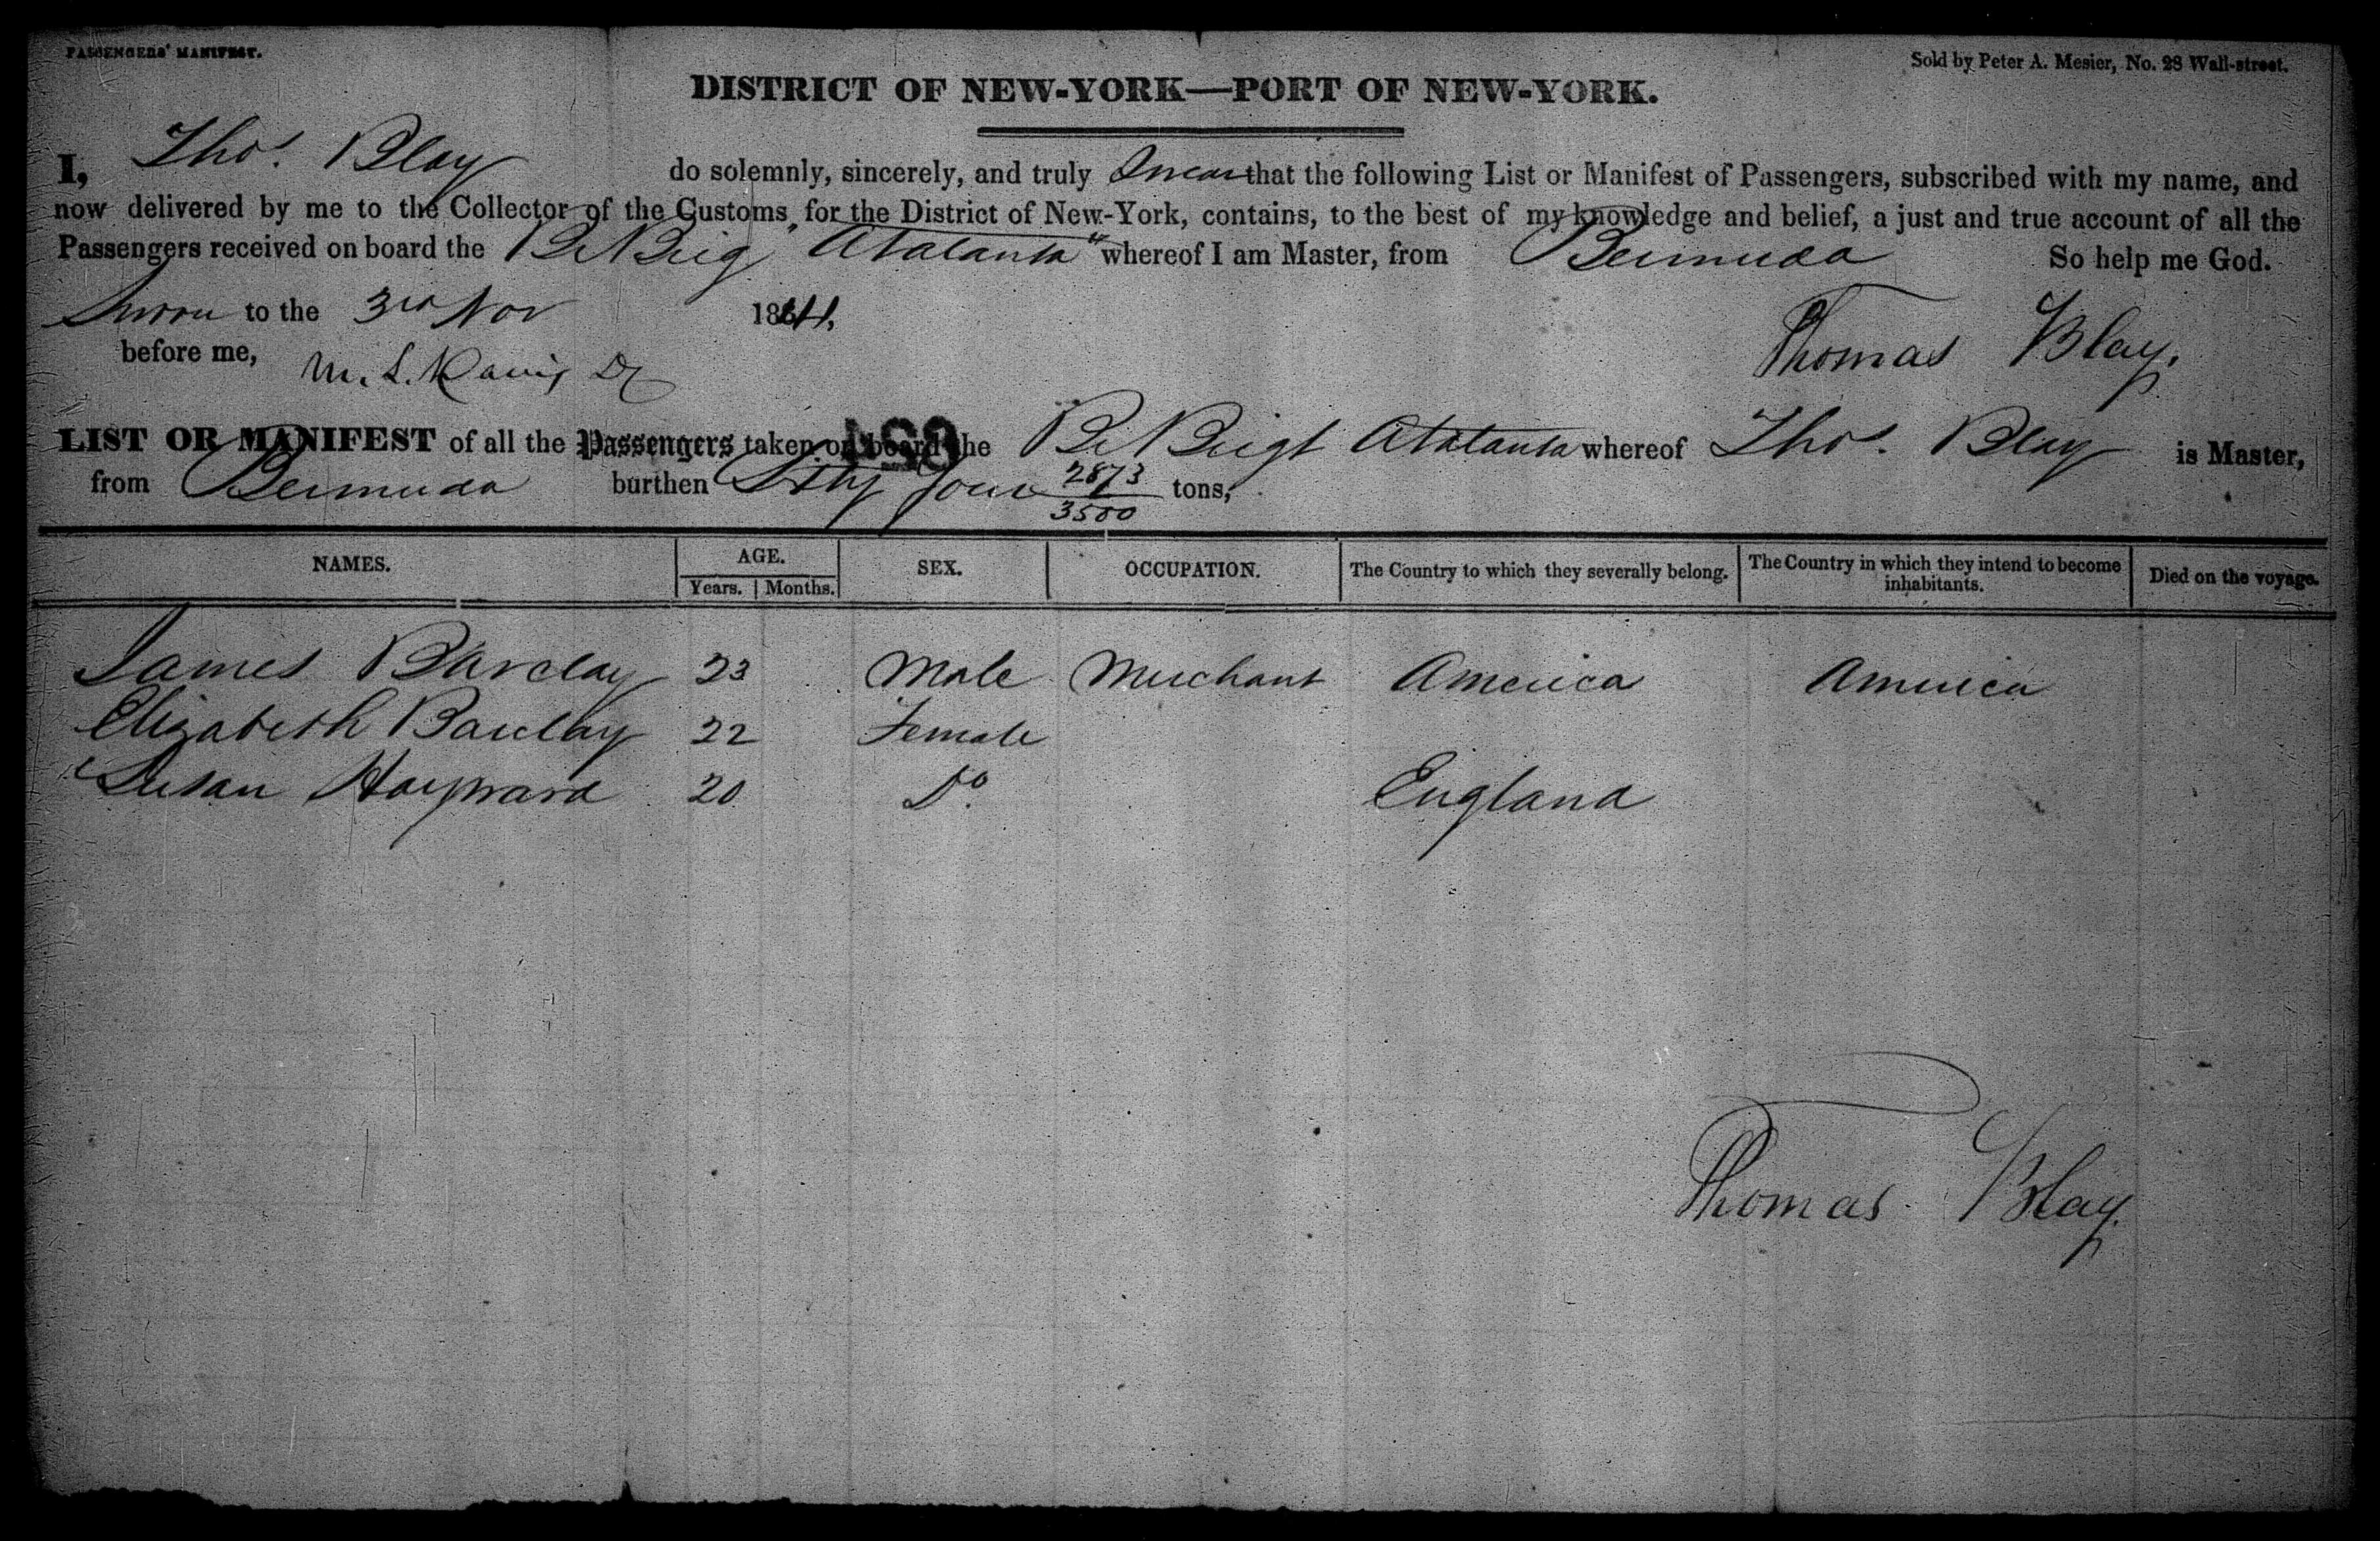 PASSENGERS' MANIFEST.
Sold by Peter A. Mesier, No. 28 Wall-street.
DISTRICT OF NEW-YORK—PORT OF NEW-YORK.
I, Thos. Blay do solemnly, sincerely, and truly Swear that the following List or Manifest of Passengers, subscribed with my name, and
now delivered by me to the Collector of the Customs, for the District of New-York, contains, to the best of my knowledge and belief, a just and true account of all the
Passengers received on board the Br Brig "Atalanta" whereof I am Master, from Bermuda So help me God.
Sworn to the 3rd Nov 18
before me, Thomas Blay.
LIST OR MANIFEST of all the Passengers taken on board the Br Brigt Atalanta whereof Thos. Blay is Master,
from Bermuda burthen four 2873/3500 tons,
NAMES. AGE. SEX. OCCUPATION. The Country to which they severally belong. The Country in which they intend to become inhabitants. Died on the voyage.
Years. Months.
James Barclay 23 Male Merchant America America
Elizabeth Barclay 22 Female
Susan Hayward 20 Do. England
Thomas Blay.